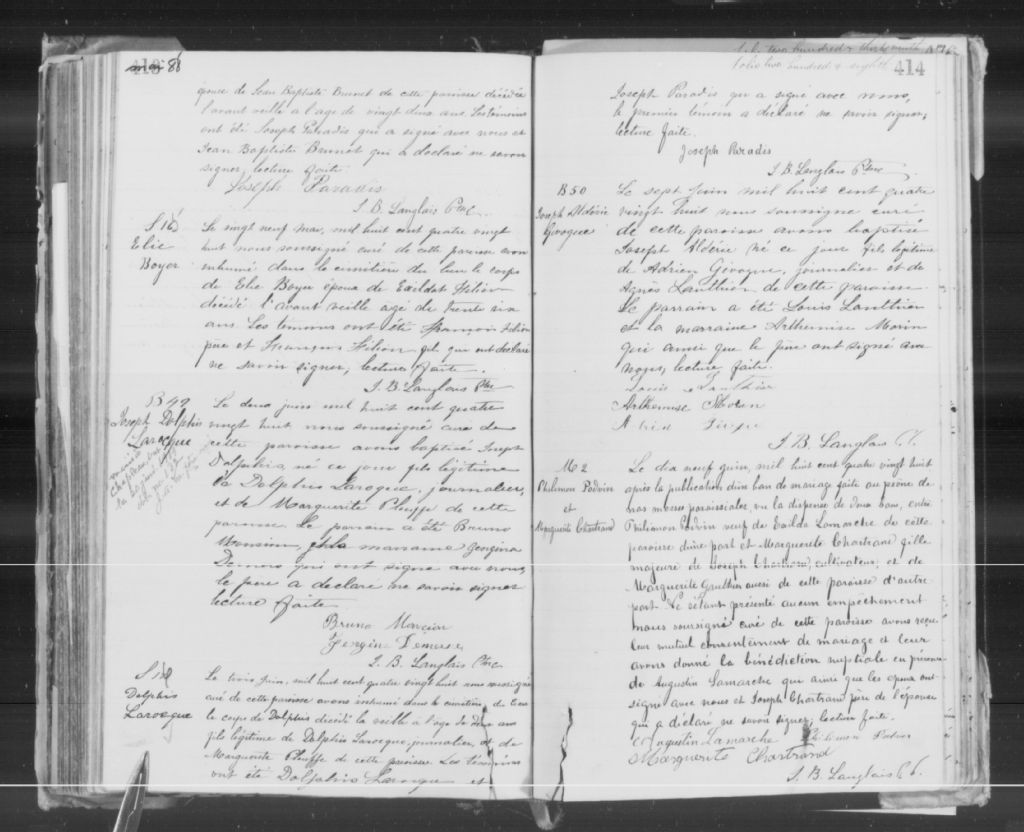 88
épouse de Jean Baptiste Brunet de cette paroisse décédée
l'avant veille a l'age de vingt deux ans Les témoins
ont été Joseph Paradis qui a signé avec nous et
Jean Baptiste Brunet qui a déclaré ne savoir
signer, lecture faite
Joseph Paradis
J. B. Langlais Ptre
Elie
Boyer
Le vingt neuf mai, mil huit cent quatre vingt
huit nous soussigné curé de cette paroisse avons
inhumé dans le cimitière du lieu le corps
de Elie Boyer époux de Exilda Filion
décédé l'avant veille agé de trente six
ans. Les temoins ont été François Filion
père et François Filion fils qui ont déclaré
ne savoir signer, lecture faite.
J. B. Langlais Ptre
Joseph Dolphis
Larocque
Le deux juin mil huit cent quatre
vingt huit nous soussigné curé de
cette paroisse avons baptisé Joseph
Dolphis, né ce jour fils légitime
de Dolphis Larocque, journalier,
et de Marguerite Plouffe de cette
paroisse. Le parrain a été Bruno
et la marraine Georgina
Demers qui ont signé avec nous,
le père a déclaré ne savoir signer
lecture faite
Bruno
J. B. Langlais Ptre
Dolphis
Larocque
Le trois juin, mil huit cent quatre vingt huit nous soussigné
curé de cette paroisse avons inhumé dans le cimitière du lieu
le corps de Dolphis décédé la veille à l'age de deux ans
fils légitime de Dolphis Larocque, journalier, et de
Marguerite Plouffe de cette paroisse. Les temoins
ont été Dolphis Larocque et
folio two hundred & eight
414
Joseph Paradis qui a signé avec nous,
le premier témoin a déclaré ne savoir signer,
lecture faite.
Joseph Paradis
J. B. Langlais Ptre
B 50
Joseph Aldéric
Gévoque
Le sept juin mil huit cent quatre
vingt huit nous soussigné curé
de cette paroisse avons baptisé
Joseph Aldéric né ce jour fils légitime
de Adrien Gévoque, journalier et de
Agnès Lauthier de cette paroisse.
Le parrain a été Louis Lauthier
et la marraine Arthemise Morin
qui ainsi que le père ont signé avec
nous, lecture faite.
Louis Lauthier
Arthemise Morin
J. B. Langlais Pt.
M 2
Philimon Podvin
et
Marguerite Chartrand
Le dix neuf juin, mil huit cent quatre vingt huit
après la publication d'un ban de mariage faite au prône de
nos messes paroissiales, vu la dispense de deux bans, entre
Philimon Podvin veuf de Exilda Lamarche de cette
paroisse d'une part et Marguerite Chartrand fille
majeure de Joseph Chartrand, cultivateur, et de
Marguerite Gauthier aussi de cette paroisse d'autre
part. Ne s'étant présenté aucun empêchement
nous soussigné curé de cette paroisse avons reçu
leur mutuel consentement de mariage et leur
avons donné la bénédiction nuptiale en présence
de Augustin Lamarche qui ainsi que les époux ont
signé avec nous et Joseph Chartrand père de l'épouse
qui a déclaré ne savoir signer, lecture faite.
Augustin Lamarche
Marguerite Chartrand
J. B. Langlais Pt.